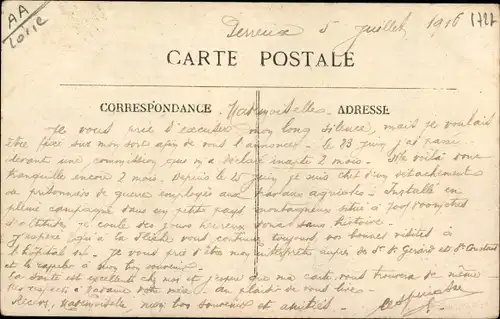 AA
Loire
1727
Perreux 5 juillet 1916
CARTE POSTALE
CORRESPONDANCE
Mademoiselle,
ADRESSE
Je vous prie d'excuser mon long silence, mais je voulais
être fixé sur mon sort afin de vous l'annoncer. Le 23 juin j'ai passé
devant une commission qui m'a déclaré inapte 2 mois. Me voilà donc
tranquille encore 2 mois. Depuis le 25 juin je suis chef d'un détachement
de prisonniers de guerre employés aux travaux agricoles. Installé en
pleine campagne dans un petit pays montagneux situé à 700/800 mètres
d'altitude, je coule des jours heureux sans histoire.
J'espère qu'à la Flèche vous continuez toujours vos bonnes visites à
l'hôpital. Je vous prie d'être mon interprète auprès de St Gérard et St Constant
et le rappeler à mon bon souvenir.
La santé est excellente chez moi et j'espère que ma carte vous trouvera de même
Mes respects à Madame votre mère. Au plaisir de vous lire.
Recevez, Mademoiselle, mon bon souvenir et amitiés.